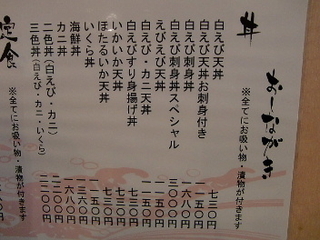 おしながき
丼 ※全てにお吸い物・漬物が付きます
白えび天丼 七三〇円
白えび天丼お刺身付き 一一五〇円
白えび刺身丼 一六八〇円
白えび刺身丼スペシャル 三〇〇〇円
えびえび天丼 一一五〇円
白えび・カニ天丼 一一五〇円
白えびすり身揚げ丼 七三〇円
いかいか天丼 七三〇円
ほたるいか天丼 一一五〇円
いくら丼
海鮮丼
カニ丼
二色丼（白えび・カニ）
三色丼（白えび・カニ・いくら）
定食 ※全てにお吸い物・漬物が付きます